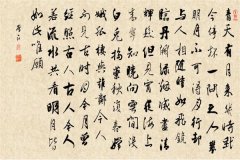 青天有月来幾時我
今停杯一问之人攀
明月不可得月行却
与人相隨皎如飛鏡
臨丹闕綠烟滅盡清
輝發但見宵從海上
來寧知曉向雲間沒
白兔搗藥秋復春嫦
娥孤棲與誰鄰今人
不見古時月今月曾
經照古人古人今人
若流水共看明月皆
如此唯願